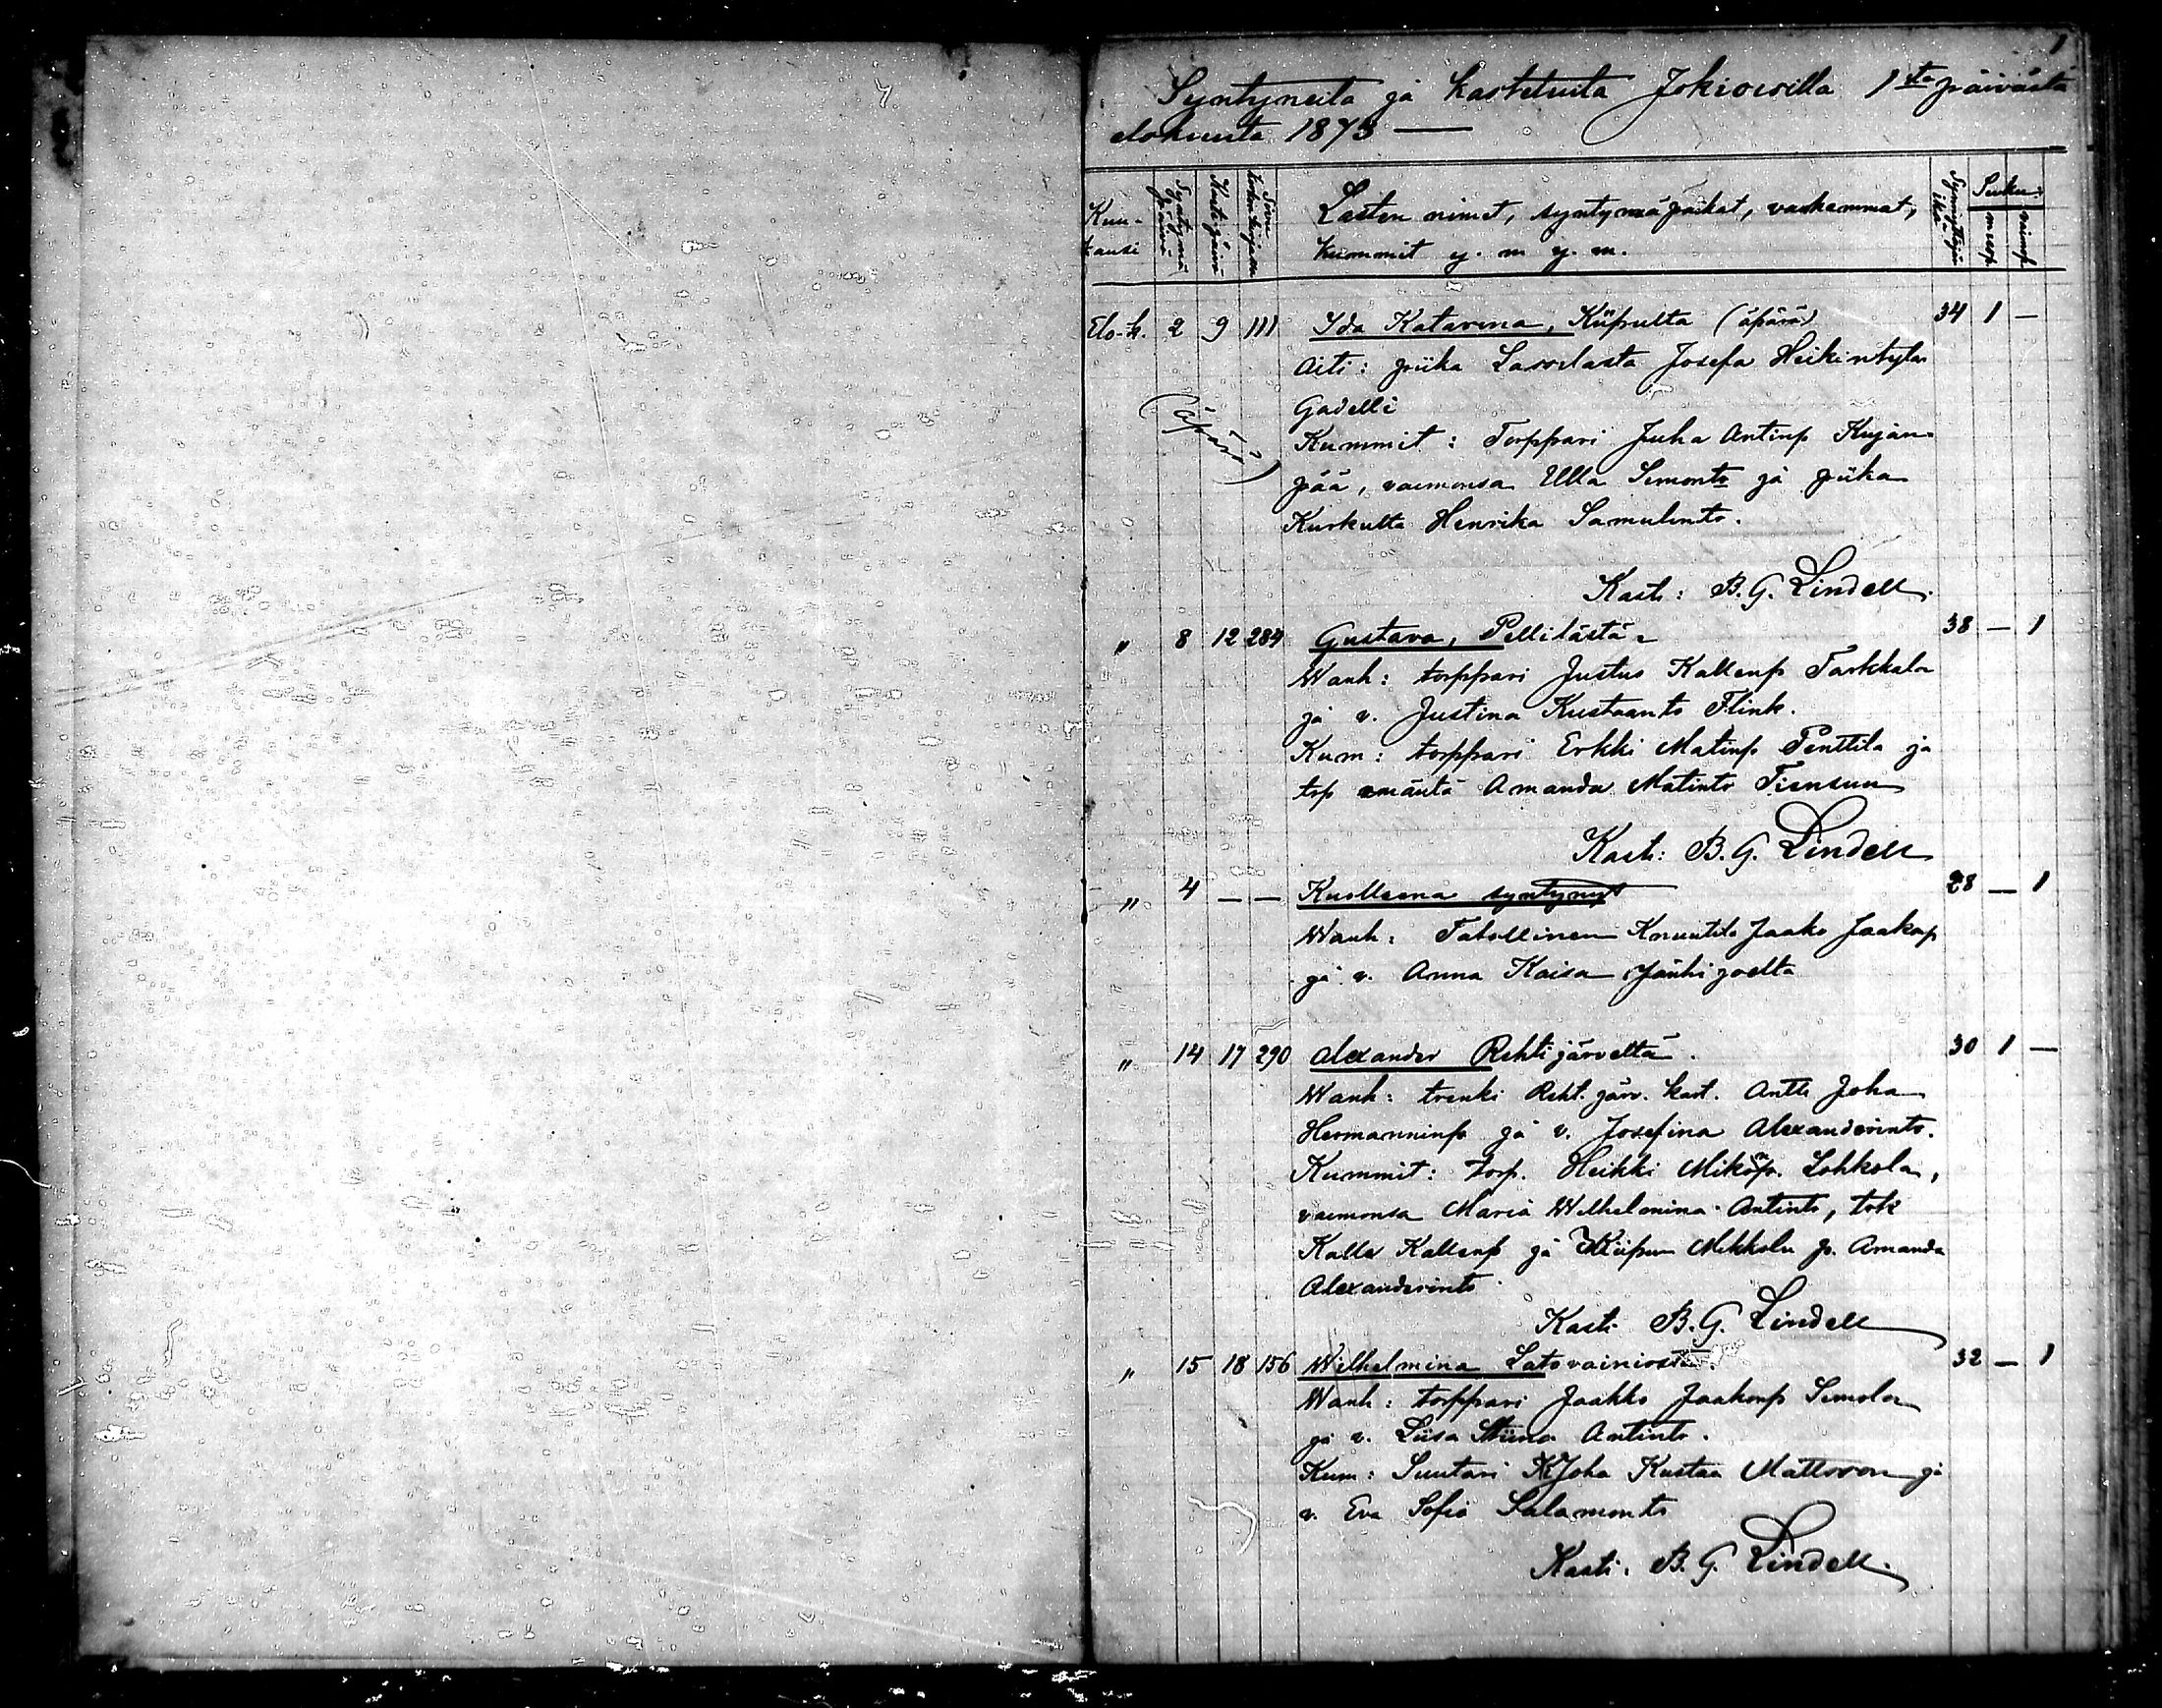 1
Syntyneitä ja kastetuita Jokioisilla 1stä päivästä
elokuuta 1873 —
Kuu-
kausi
Syntymä
päivä
Kaste päivä
Sivu
kirkonkirjassa
Lasten nimet, syntymäpaikat, vanhemmat,
kummit y. m. y. m.
Synnyttäjän
ikä
Suku:
miesp.
vaimop.
Elo-k. 2 9 111 Ida Katarina, Kiipulta (äpärä) 34 1 —
Äiti: piika Lassilasta Josefa Heikintytär
Gadelli
(äpärä)
Kummit: Torppari Juha Antinp Kujan-
pää, vaimonsa Ulla Simontr ja piika
Kurkulta Henrika Samulintr.
Kasti: B. G. Lindell.
" 8 12 284 Gustava, Pellilästä. 38 — 1
Wanh: torppari Justus Kallenp Tarkkala
ja v. Justina Kustaantr Flink.
Kum: torppari Erkki Matinp Penttila ja
trp emäntä Amanda Matintr Tiensuu
Kasti: B. G. Lindell
" 4 — — Kuolleena syntynyt 28 — 1
Wanh: Talollinen Knuutila Jaako Jaakop
ja v. Anna Kaisa Jänhijoelta
" 14 17 290 Alexander Rehtijärveltä. 30 1 —
Wanh: trenki Reht. järv. kart. Antti Joha
Hermanninp ja v. Josefina Alexanderintr.
Kummit: torp. Heikki Mikonp. Lohkola,
vaimonsa Maria Wilhelmina Antintr, tok
Kalle Kallenp ja Kiipun Mikkola p. Amanda
Alexanderintr
Kasti B. G. Lindell
" 15 18 156 Wilhelmina Latovainiosta. 32 — 1
Wanh: torppari Jaakko Jaakonp Simola
ja v. Liisa Stiina Antintr.
Kum: Suutari Joha Kustaa Mattsson ja
v. Eva Sofia Salamontr
Kasti. B. G. Lindell.